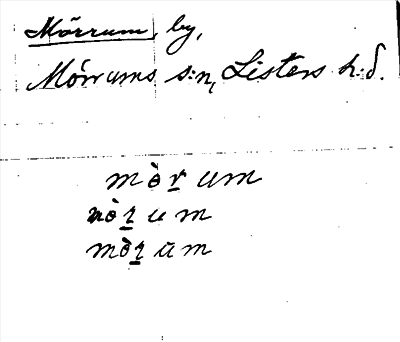 Mörrum, by,
Mörrums s:n, Listers h:d.
mòr̲um
mòr̲um
mòr̲ūm